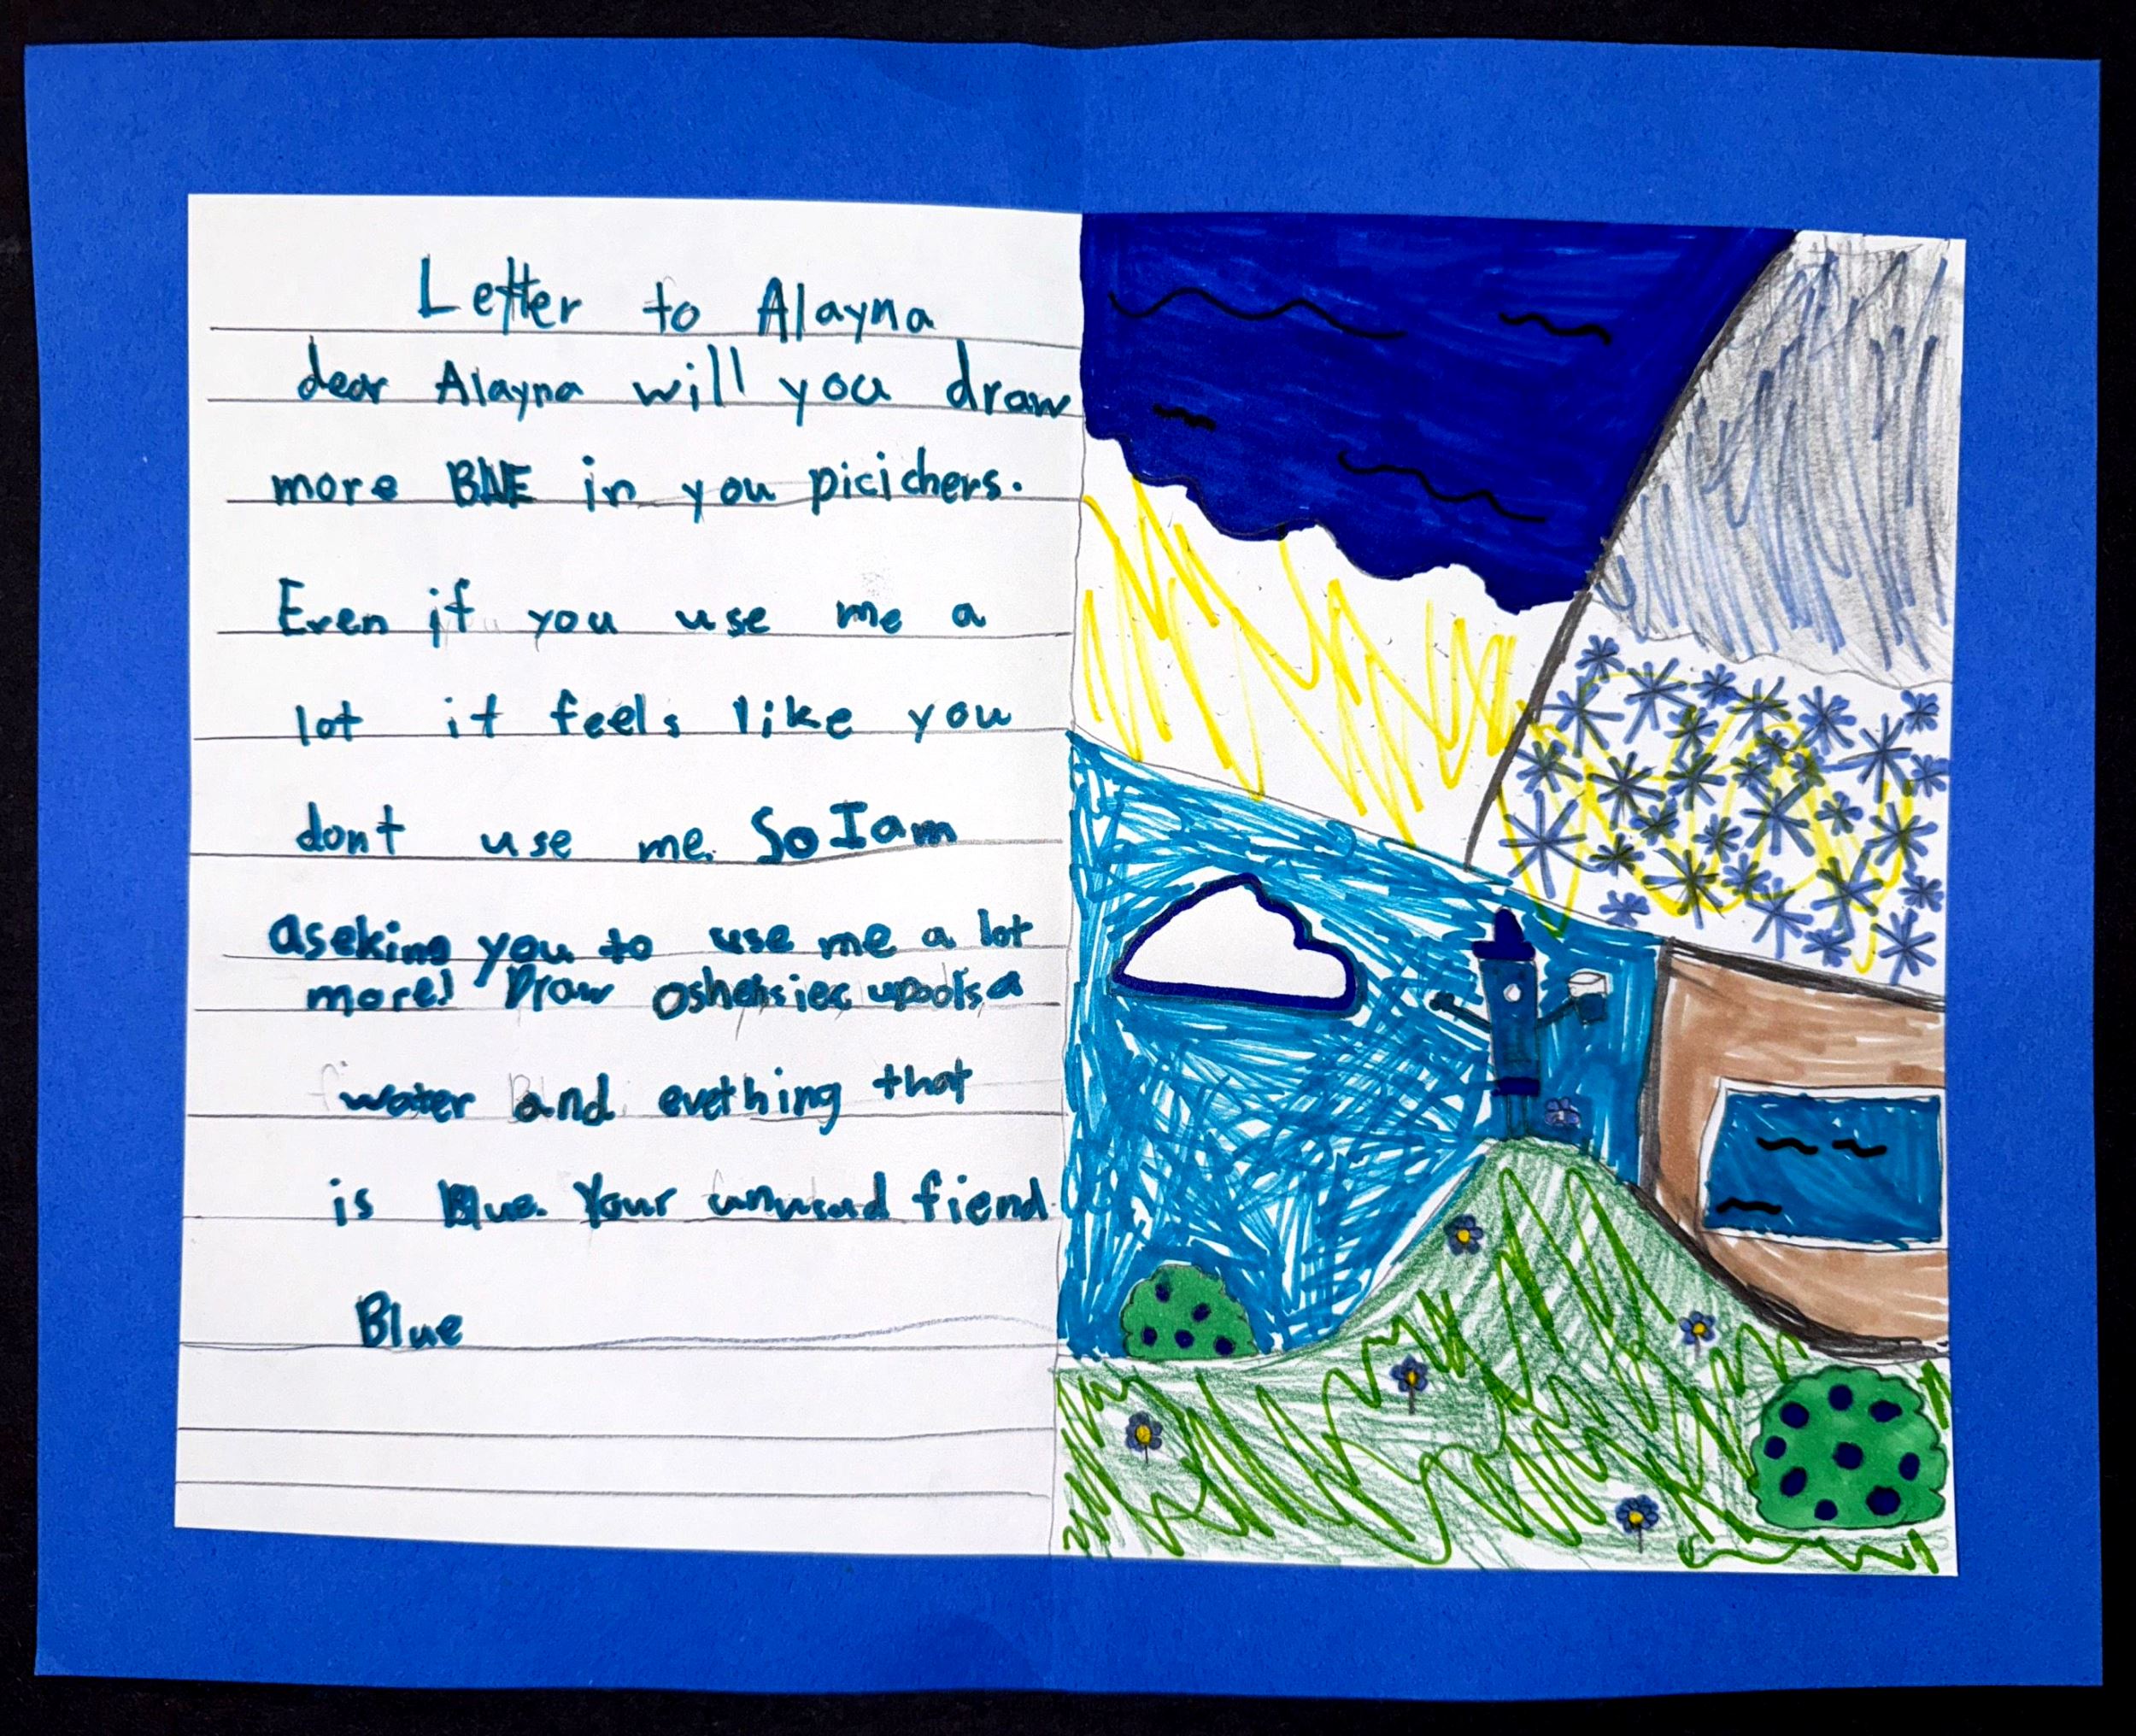 Letter to Alayna
dear Alayna will you draw
more BlUE in you picichers.
Even if you use me a
lot it feels like you
dont use me. So I am
aseking you to use me a lot
more! Draw
water and evething that
is Blue. Your fiend
Blue